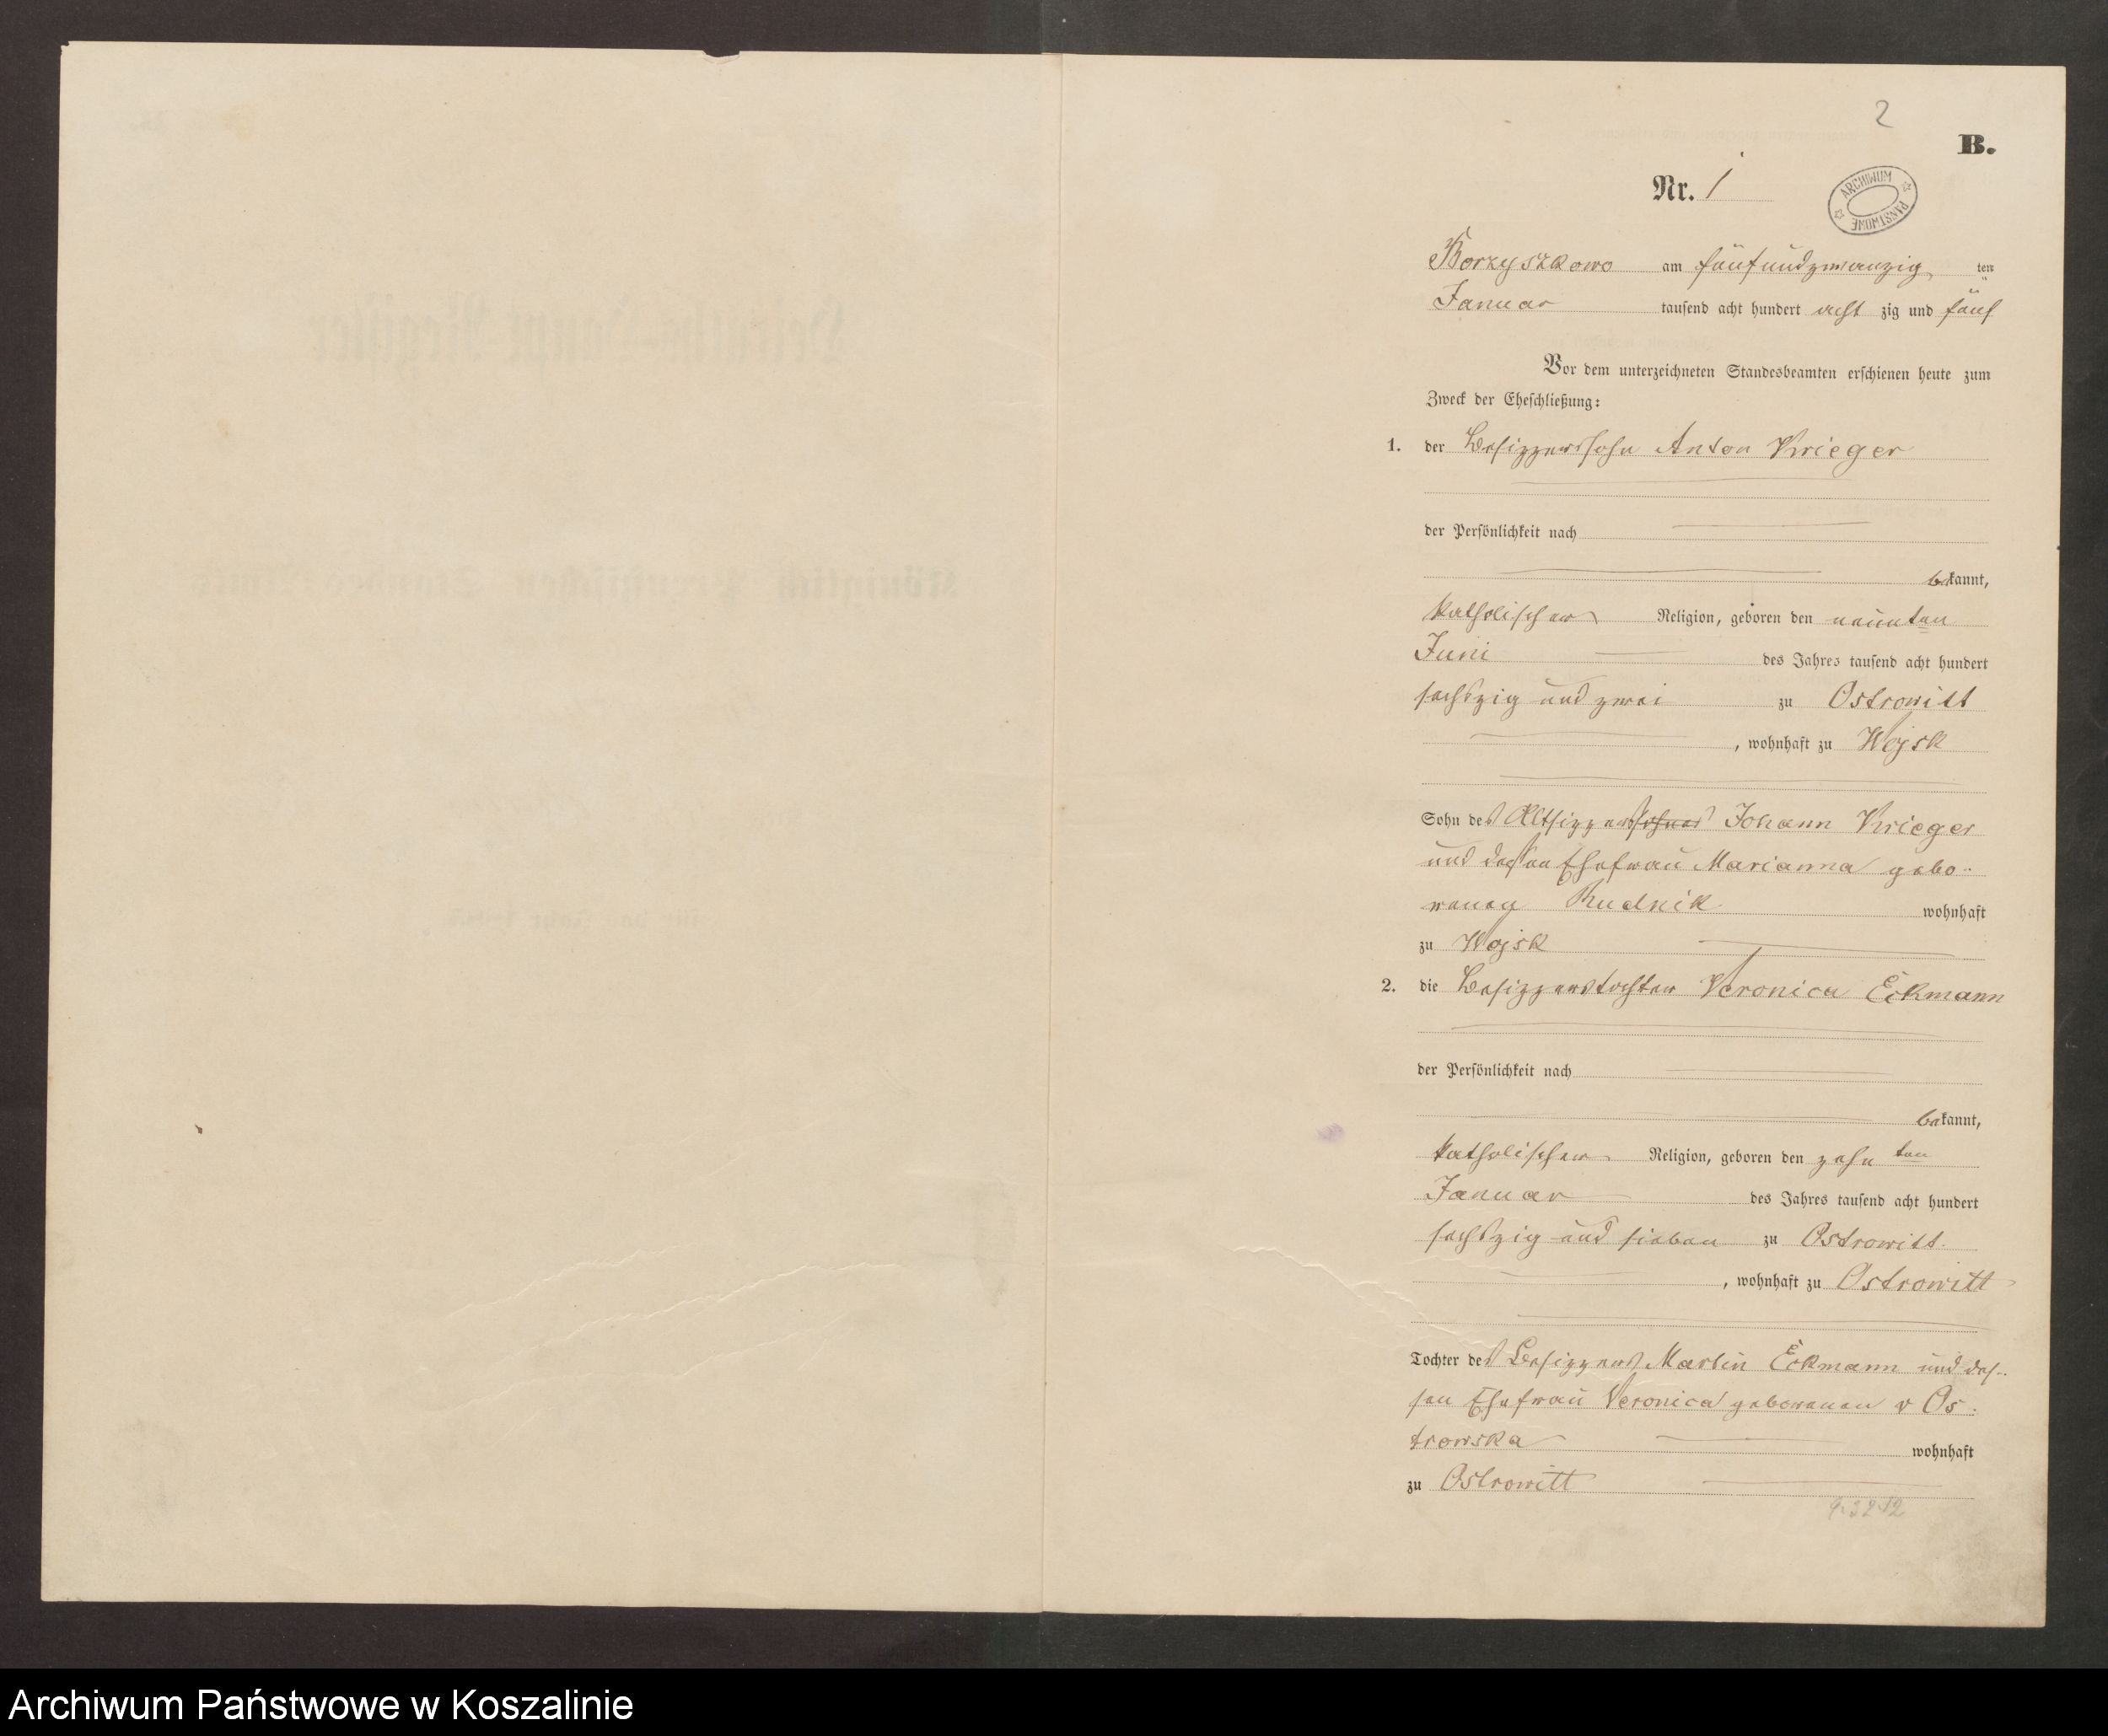 2
B.
Nr. 1
ARCHIWUM PAŃSTWOWE
Borzyszkowo am fünfundzwanzig ten
Januar tausend acht hundert acht zig und fünf
Vor dem unterzeichneten Standesbeamten erschienen heute zum
Zweck der Eheschließung:
1. der Besitzerssohn Anton Krieger
der Persönlichkeit nach
bekannt,
katholischer Religion, geboren den neunten
Juni des Jahres tausend acht hundert
sechszig und zwei zu Ostrowitt
, wohnhaft zu Wojsk
Sohn des Altsitzers Johann Krieger
und dessen Ehefrau Marianna gebo-
renen Rudnik wohnhaft
zu Wojsk
2. die Besitzerstochter Veronica Eckmann
der Persönlichkeit nach
bekannt,
katholischer Religion, geboren den zehn ten
Januar des Jahres tausend acht hundert
sechszig und sieben zu Ostrowitt
, wohnhaft zu Ostrowitt
Tochter des Besitzers Martin Eckmann und des-
sen Ehefrau Veronica geborenen v Os-
trowska wohnhaft
zu Ostrowitt
Archiwum Państwowe w Koszalinie